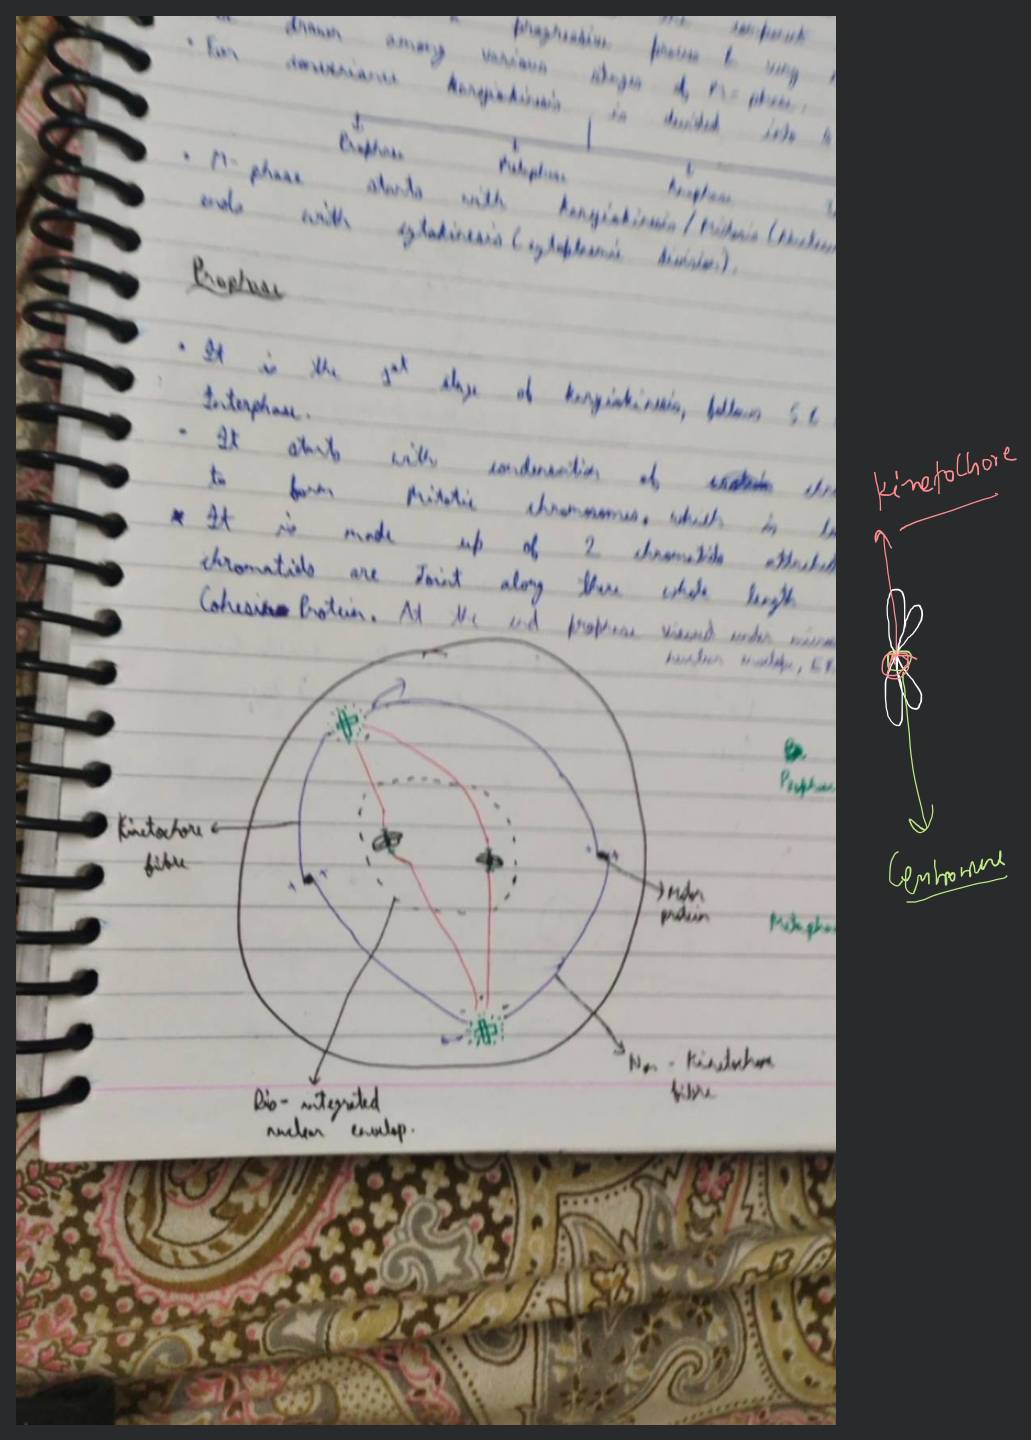 drawn among various stages of M-phase.
• For convenience Karyokinesis is divided into
Prophase Metaphase Anaphase
• M-phase starts with Karyokinesis/Mitosis (
ends with cytokinesis (cytoplasmic division).
Prophase
• It is the 1st stage of Karyokinesis, follows S.
Interphase.
• It starts with condensation of
to form Mitotic chromosomes, which is
* It is made up of 2 chromatids attached
chromatids are Joint along there whole length
Cohesin Protein. At the end prophase viewed under
nuclear envelop,
Kinetochore
fibre
Motor
protein
Non-Kinetochore
fibre
Dis-integrated
nuclear envelop.
Prophase
Metaphase
Kinetochore
Centromere